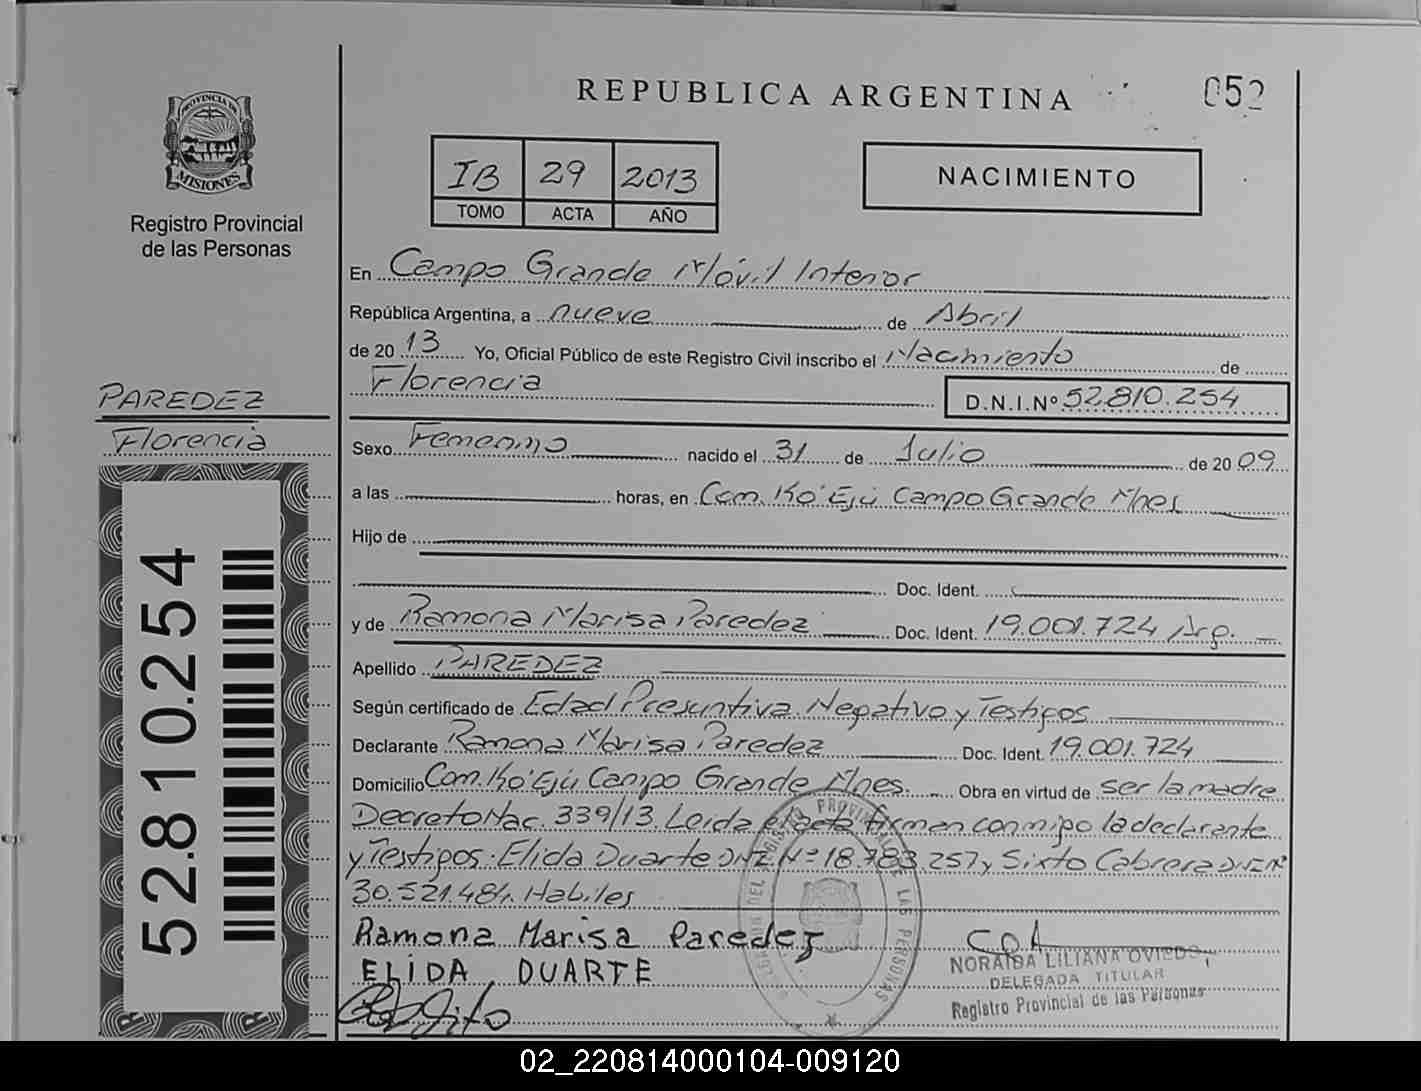 REPUBLICA ARGENTINA
052
PROVINCIA DE
MISIONES
Registro Provincial
de las Personas
IB 29 2013
TOMO ACTA AÑO
NACIMIENTO
En Campo Grande Móvil Interior
República Argentina, a nueve de Abril
de 2013 Yo, Oficial Público de este Registro Civil inscribo el Nacimiento de
Florencia
D.N.I.Nº 52.810.254
PAREDEZ
Florencia
52.810.254
Sexo Femenino nacido el 31 de Julio de 2009
a las horas, en Com. Ko'Ejú Campo Grande Mnes
Hijo de
Doc. Ident.
y de Ramona Marisa Paredez Doc. Ident. 19.001.724 Arg.
Apellido PAREDEZ
Según certificado de Edad Presuntiva Negativo y Testigos
Declarante Ramona Marisa Paredez Doc. Ident. 19.001.724
Domicilio Com. Ko'Ejú Campo Grande Mnes. Obra en virtud de ser la madre
Decreto Nac. 339/13. Leida el acta firman conmigo la declarante
y Testigos: Elida Duarte DNI Nº 18.783.257 y Sixto Cabrera DNI Nº
30.521.484. Habiles
Ramona Marisa Paredez
ELIDA DUARTE
NORAIDA LILIANA OVIEDO
DELEGADA TITULAR
Registro Provincial de las Personas
02_220814000104-009120